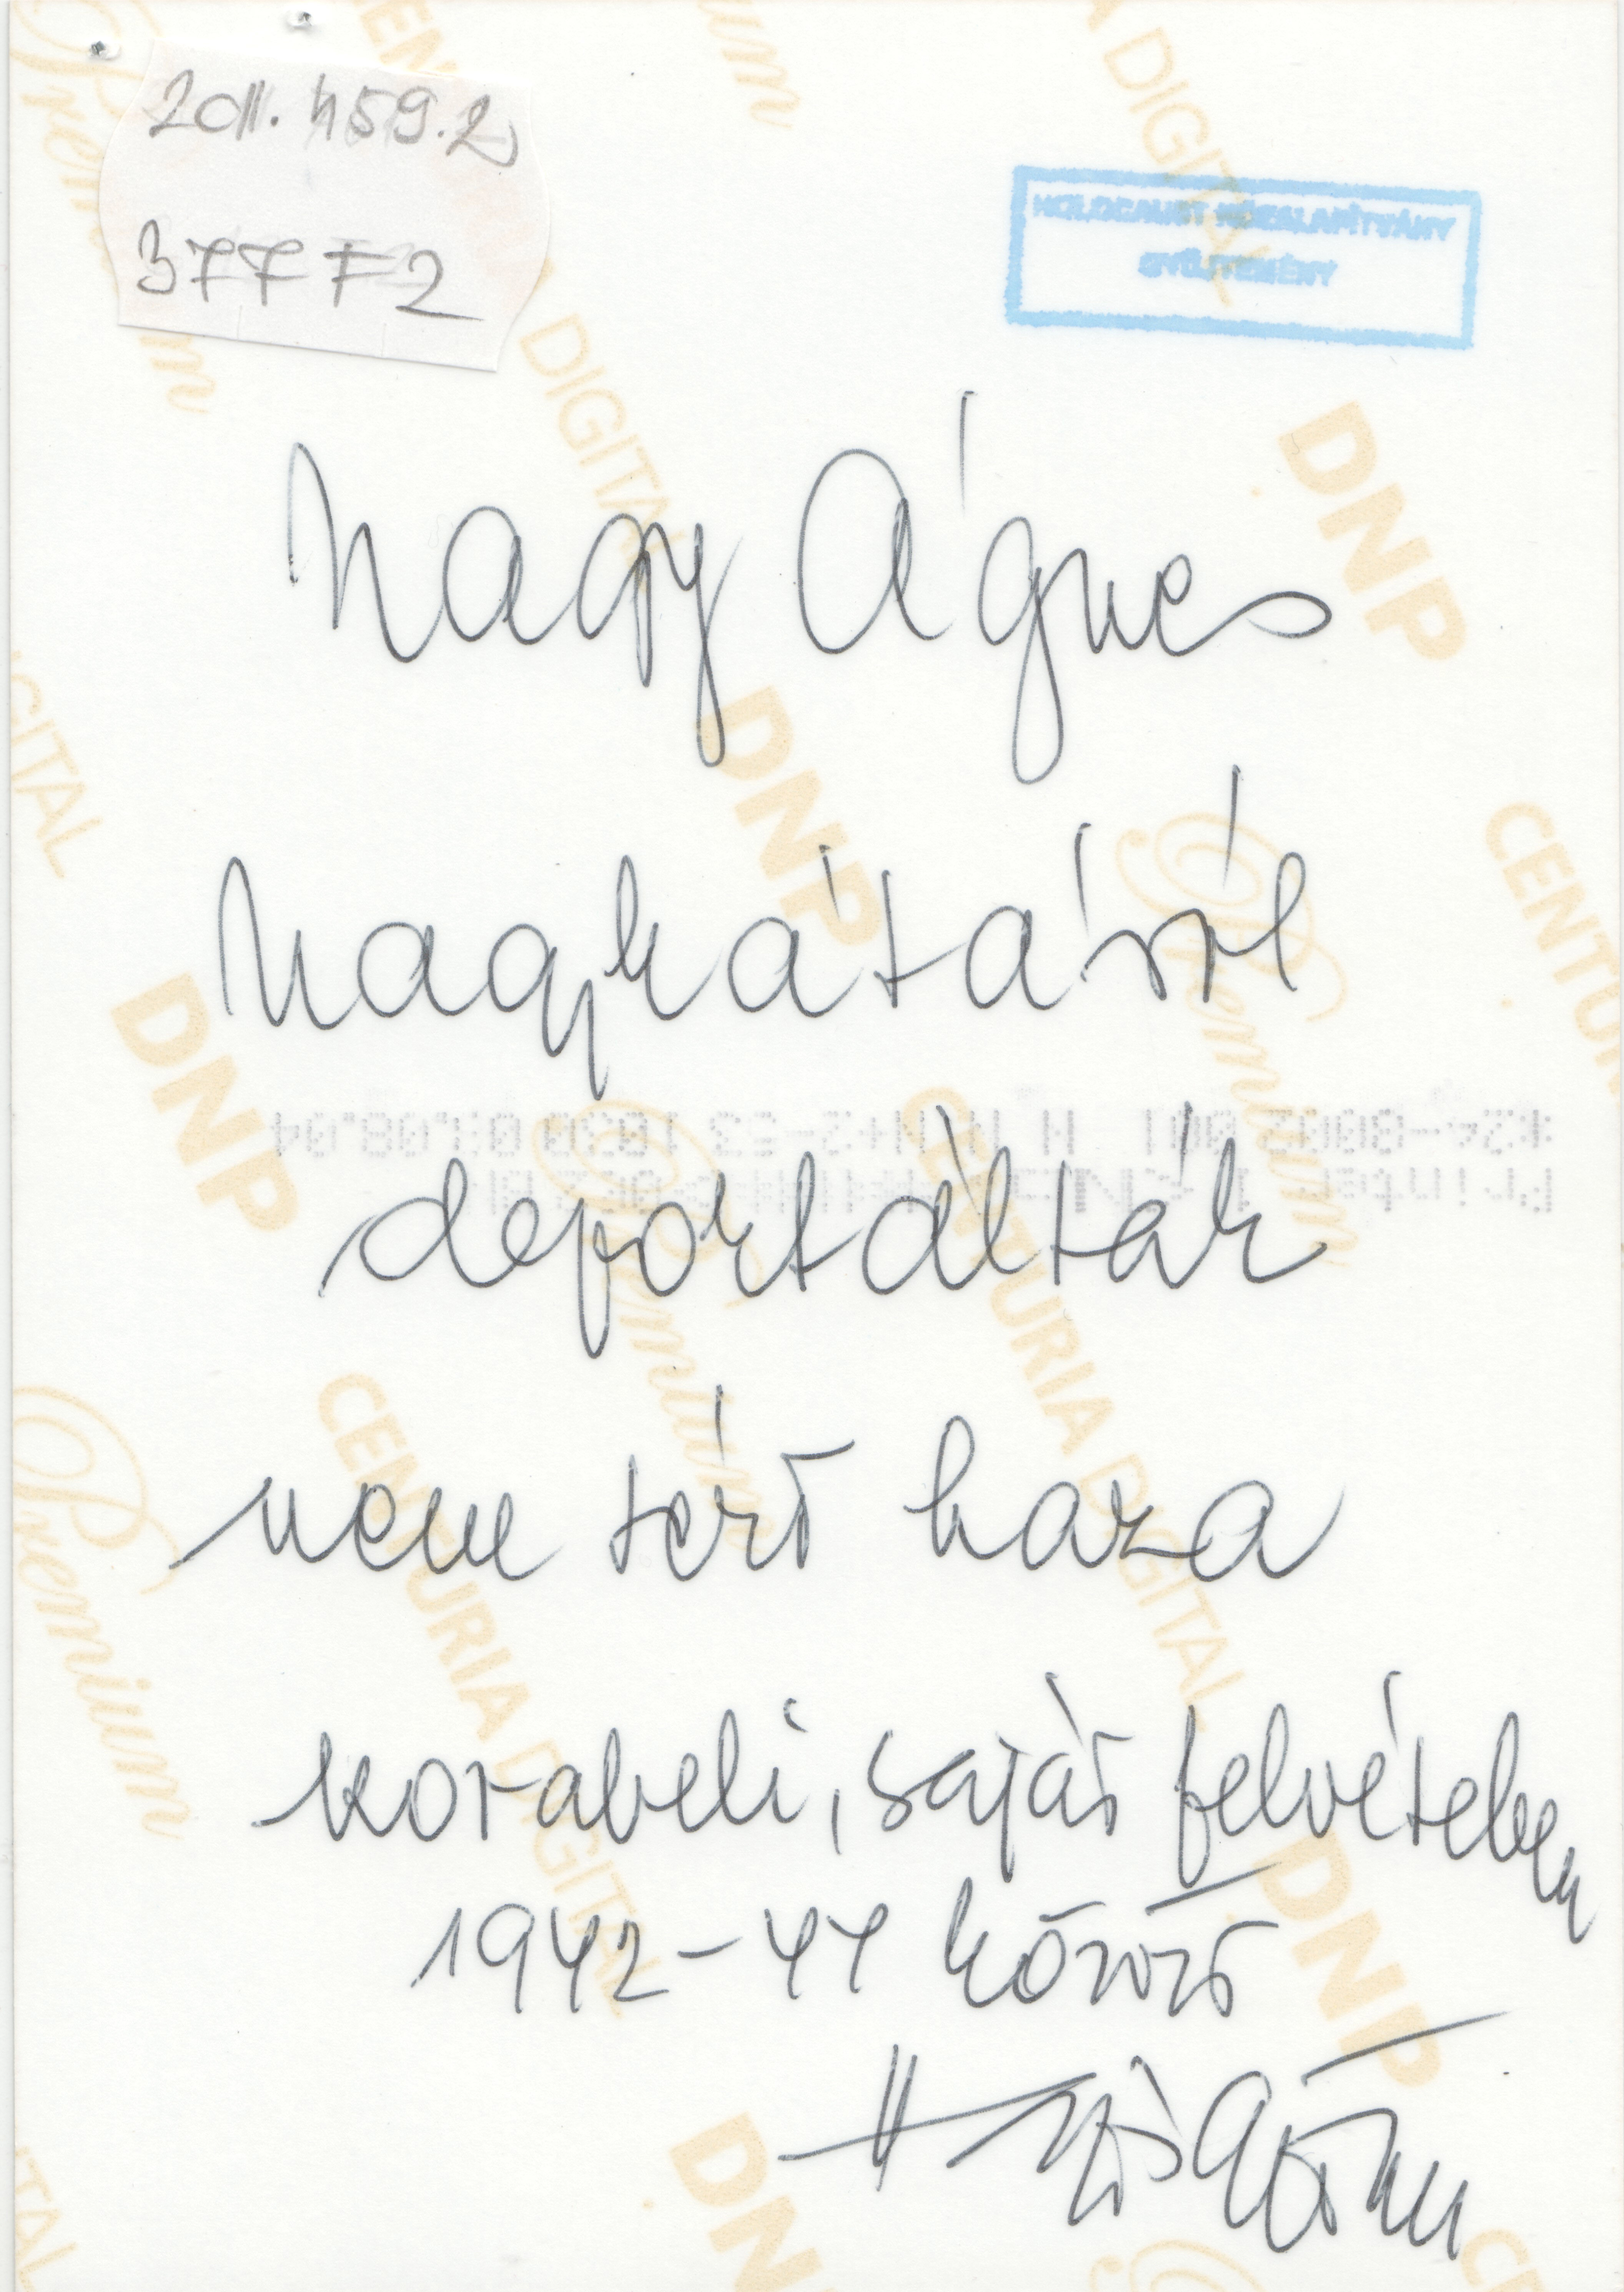 2011.459.2
377F2
HOLOCAUST KÖZALAPÍTVÁNY
GYŰJTEMÉNY
Nagy Ágnes
Nagykátáról
deportálták
nem tért haza
korabeli, saját felvételen
1942-44 között
DNP
CENTURIA DIGITAL
Premium